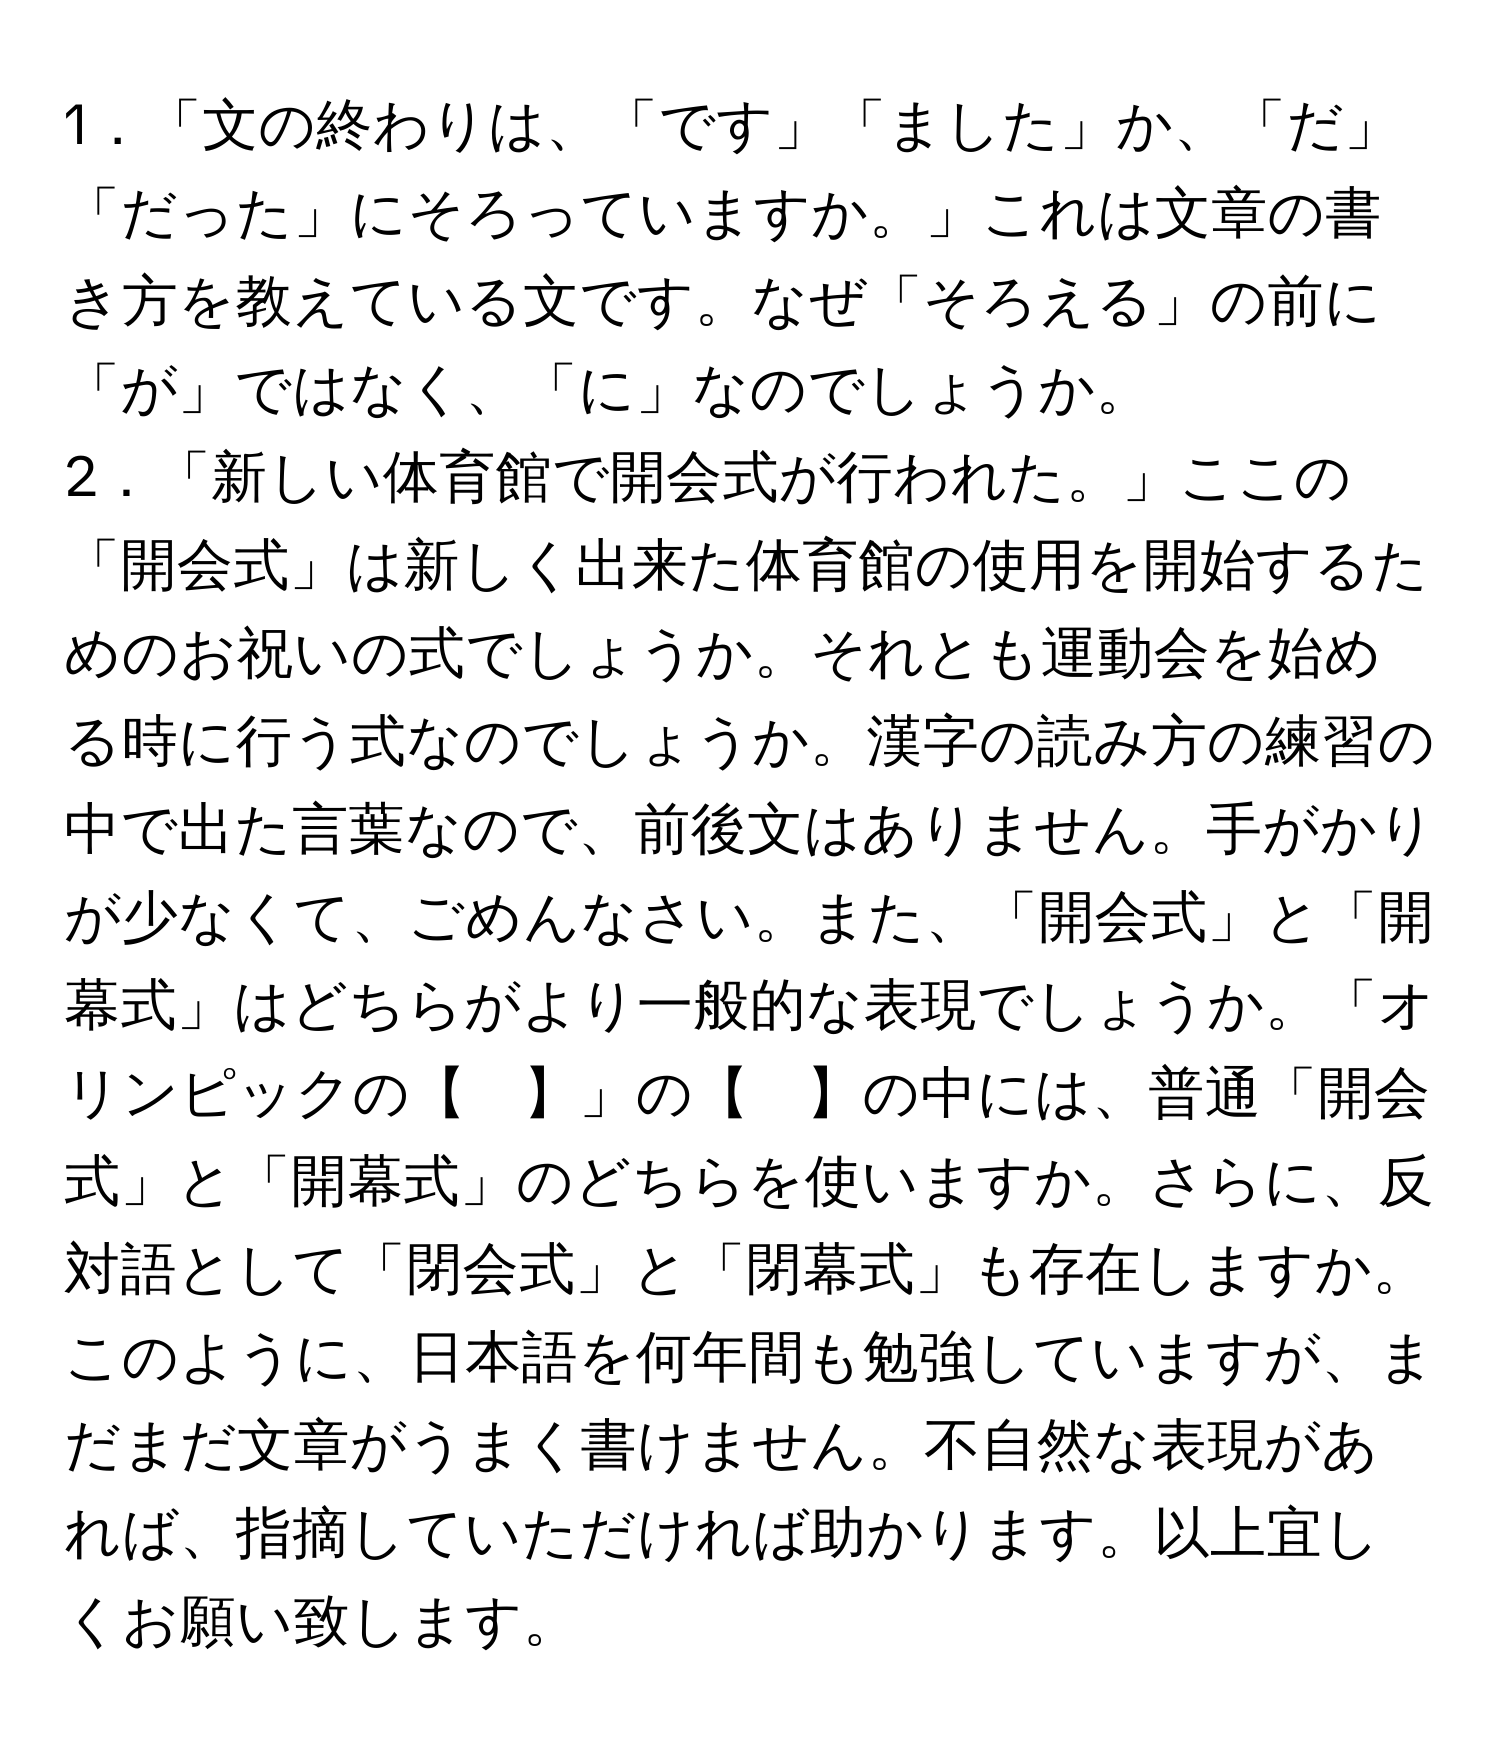 1．「文の終わりは、「です」「ました」か、「だ」
「だった」にそろっていますか。」これは文章の書
き方を教えている文です。なぜ「そろえる」の前に
「が」ではなく、「に」なのでしょうか。
2．「新しい体育館で開会式が行われた。」ここの
「開会式」は新しく出来た体育館の使用を開始するた
めのお祝いの式でしょうか。それとも運動会を始め
る時に行う式なのでしょうか。漢字の読み方の練習の
中で出た言葉なので、前後文はありません。手がかり
が少なくて、ごめんなさい。また、「開会式」と「開
幕式」はどちらがより一般的な表現でしょうか。「オ
リンピックの【　】」の【　】の中には、普通「開会
式」と「開幕式」のどちらを使いますか。さらに、反
対語として「閉会式」と「閉幕式」も存在しますか。
このように、日本語を何年間も勉強していますが、ま
だまだ文章がうまく書けません。不自然な表現があ
れば、指摘していただければ助かります。以上宜し
くお願い致します。